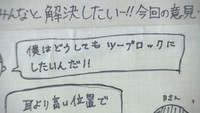 みんなと解決したいー!!今回の意見
僕はどうしてもツーブロックに
したいんだ!!
耳より高い位置で
Bさん